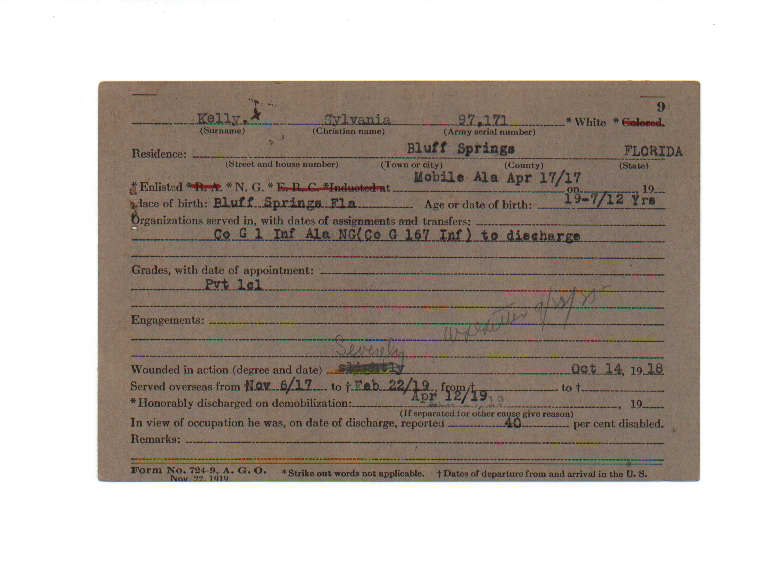 9
Kelly, Sylvania 97,171 * White * Colored.
(Surname) (Christian name) (Army serial number)
Residence: Bluff Springs FLORIDA
(Street and house number) (Town or city) (County) (State)
* Enlisted * R. A. * N. G. * E. R. C. * Inducted at Mobile Ala Apr 17/17 on 19
Place of birth: Bluff Springs Fla Age or date of birth: 19-7/12 Yrs
Organizations served in, with dates of assignments and transfers:
Co G 1 Inf Ala NG(Co G 167 Inf) to discharge
Grades, with date of appointment:
Pvt 1cl
Engagements:
Severely
Wounded in action (degree and date) slightly Oct 14, 1918
Served overseas from † Nov 6/17 to † Feb 22/19 from † to †
* Honorably discharged on demobilization: Apr 12/19 , 19
(If separated for other cause give reason)
In view of occupation he was, on date of discharge, reported 40 per cent disabled.
Remarks:
Form No. 724-9, A. G. O. * Strike out words not applicable. † Dates of departure from and arrival in the U. S.
Nov. 22, 1919